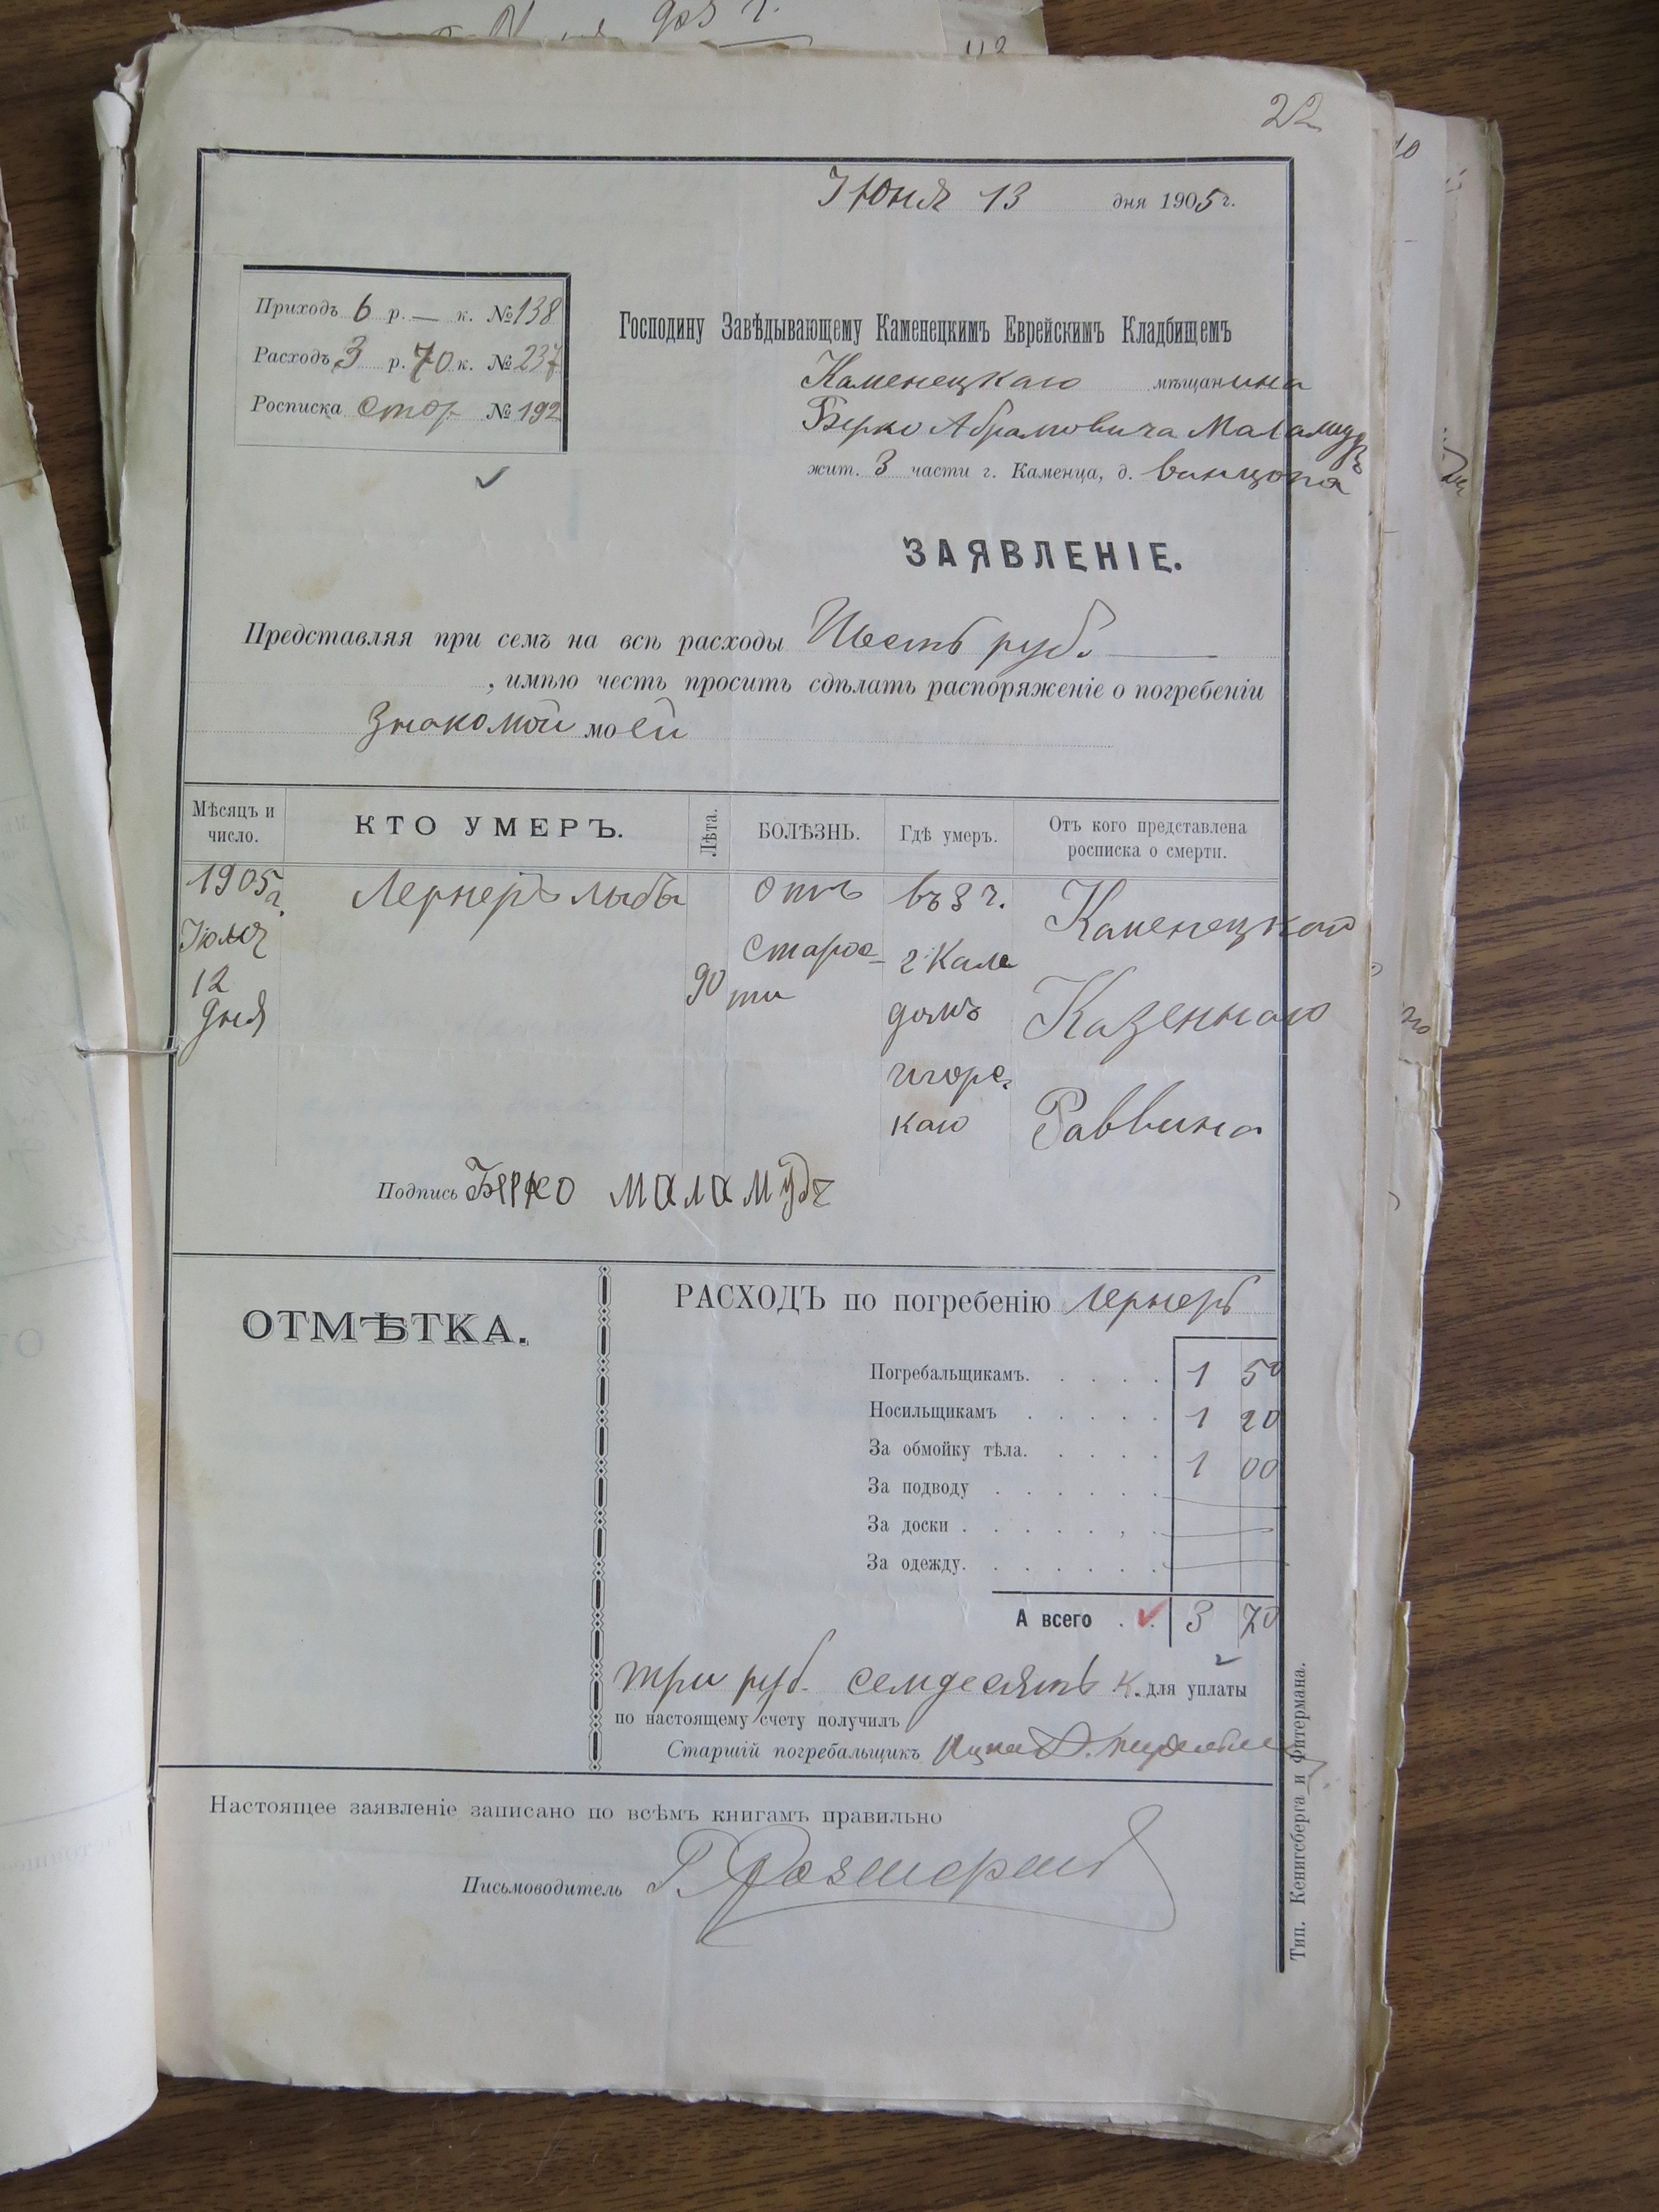 22
Июня 13 дня 1905 г.
Приходъ 6 р. — к. № 138
Расходъ 3 р. 70 к. № 237
Росписка стор. № 192
Господину Завѣдывающему Каменецкимъ Еврейскимъ Кладбищемъ
Каменецкаго мѣщанина
Берко Абрамовича Маламудъ
жит. 3 части г. Каменца, д.
ЗАЯВЛЕНІЕ.
Представляя при семъ на всѣ расходы Шесть руб.
, имѣю честь просить сдѣлать распоряженіе о погребеніи
знакомой моей
Мѣсяцъ и число. КТО УМЕРЪ. Лѣта. БОЛѢЗНЬ. Гдѣ умеръ. Отъ кого представлена росписка о смерти.
1905 г. Лернеръ отъ въ 3 ч. Каменецкаго
старос- г. Каме
12 90 ти домъ Казеннаго
дня
каго Раввина
Подпись Берко маламудъ
ОТМѢТКА.
РАСХОДЪ по погребенію Лернеръ
Погребальщикамъ. 1 50
Носильщикамъ 1 20
За обмойку тѣла. 1 00
За подводу
За доски
За одежду.
А всего 3 70
три руб. семдесятъ к. для уплаты
по настоящему счету получилъ
Старшій погребальщикъ
Настоящее заявленіе записано по всѣмъ книгамъ правильно
Письмоводитель
Тип. Кенигсберга и Фитермана.